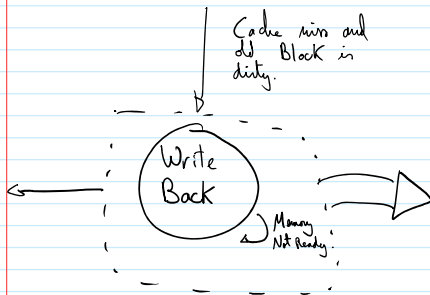 Cache miss and
old Block is
dirty.
Write
Back
Memory
Not Ready.